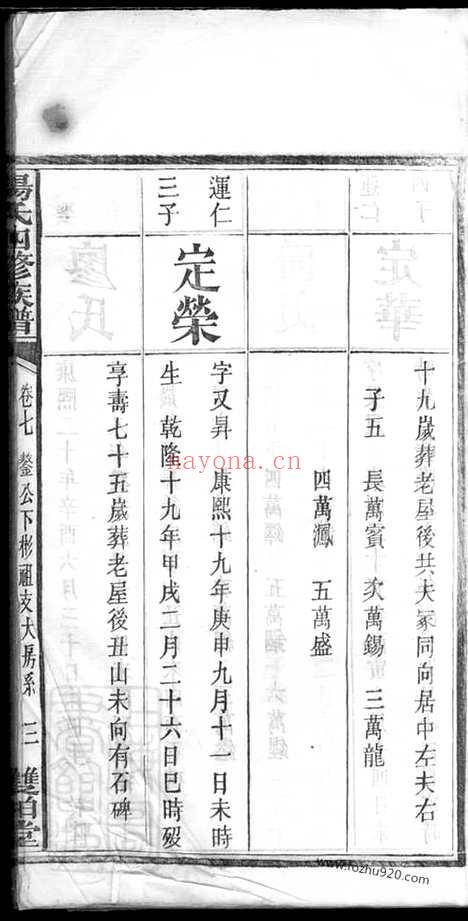 十九歲葬老屋後共夫冢同向居中左夫右
子五 長萬賓 次萬錫 三萬龍
四萬鳳 五萬盛
運仁三子
定榮
字又昇 康熙十九年庚申九月十一日未時
生 乾隆十九年甲戌二月二十六日巳時歿
享壽七十五歲葬老屋後丑山未向有石碑
楊氏四修族譜
卷七 鏊公下彬祖支大房系 三 雙柏堂
nayona.cn
www.fozhu920.com